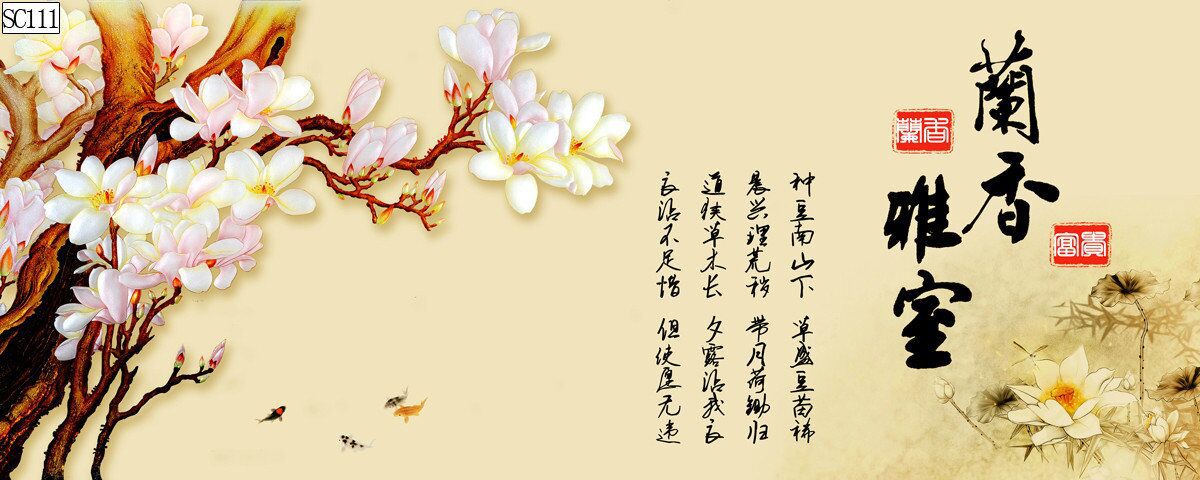 SC111
蘭香
雅室
蘭香
富貴
种豆南山下 草盛豆苗稀
晨兴理荒秽 带月荷锄归
道狭草木长 夕露沾我衣
衣沾不足惜 但使愿无违